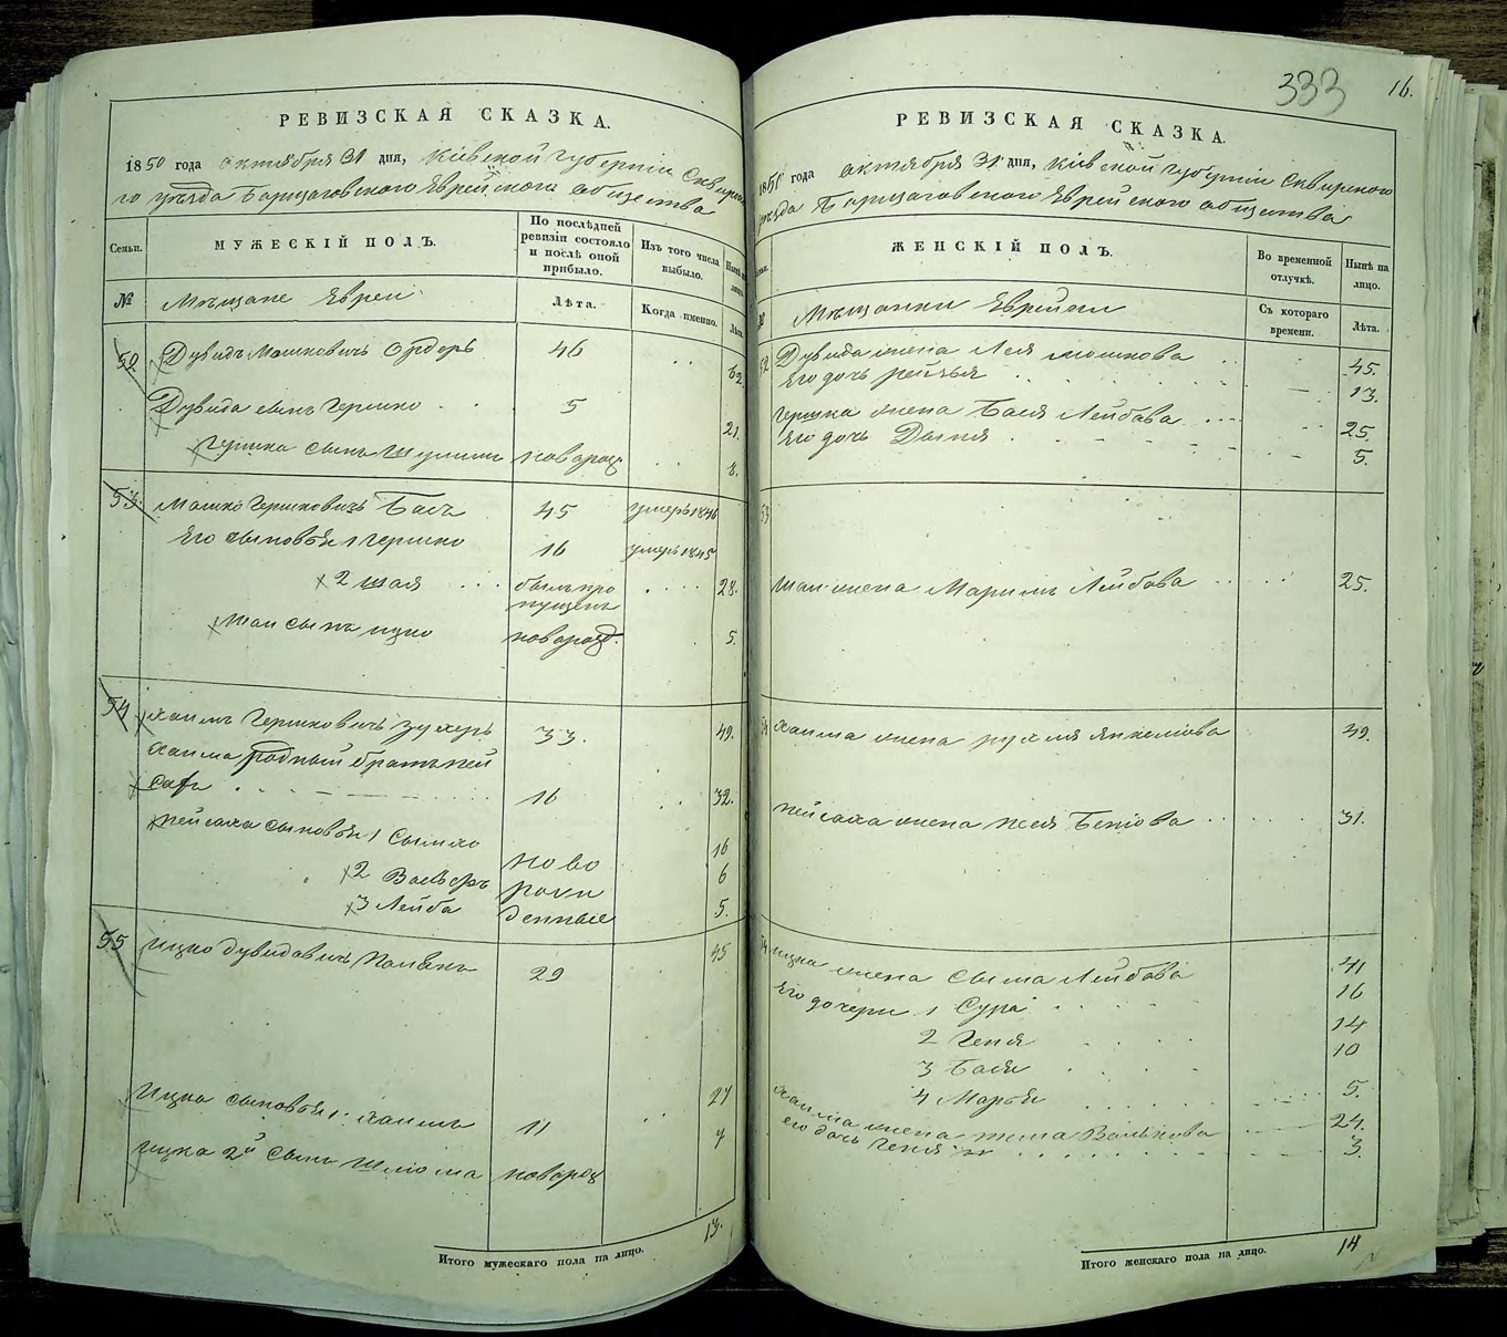 РЕВИЗСКАЯ СКАЗКА.
1850 года октября 31 дня, Кіевской губерніи Сквирска
го уѣзда Борщаговского Еврейского общества
Семьи.
МУЖЕСКІЙ ПОЛЪ.
По послѣдней ревизіи состояло и послѣ оной прибыло.
Изъ того числа выбыло.
№
Мѣщане Евреи
Лѣта.
Когда именно.
Лѣта
52
Дувидъ Мошковичъ
46
62.
Дувида сынъ Гершко
5
21.
Гершка сынъ новорож
8.
53.
Мошко Гершковичъ Басъ
45
умеръ 1846
Его сыновья 1 Гершко
16
умеръ 1845
2 Шая
былъ про
пущенъ
28.
Шаи сынъ Ицко
новорожд.
5.
54
Хаимъ Гершковичъ Зухеръ
33.
49.
Хаима родный братъ Пей
сахъ
16
32.
Пейсаха сыновья 1 Сымхо
ново
16
2 Вольфъ
рож
6
3 Лейба
денные
5.
55
Ицко Дувидовичъ
29
45
Ицка сыновья 1. Хаимъ
11
27
Ицка 2й сынъ Шлиома
новорож
7
13.
Итого мужескаго пола на лицо.
333
16.
РЕВИЗСКАЯ СКАЗКА.
185 года октября 31 дня, Кіевской губерніи Сквирского
уѣзда Борщаговского Еврейского общества
ЖЕНСКІЙ ПОЛЪ.
Во временной отлучкѣ.
Нынѣ на лицо.
№
Мѣщанки Еврейки
Съ котораго времени.
Лѣта.
52
Дувида жена Лея Мошкова
45.
Его дочь Рейзья
13.
Гершка жена Бася Лейбова
25.
Его дочь Дыня
5.
53
Шаи жена Маримъ Лейбова
25.
54
Хаима жена Рухля Янкелиова
39.
Пейсаха жена Песя Бениова
31.
Ицка жена Сыма Лейбова
41
Его дочери 1 Сура
16
2 Геня
14
3 Бася
10
4 Марья
5.
Хаима жена Волькова
24.
его дочь Геня
3.
Итого женскаго пола на лицо.
14